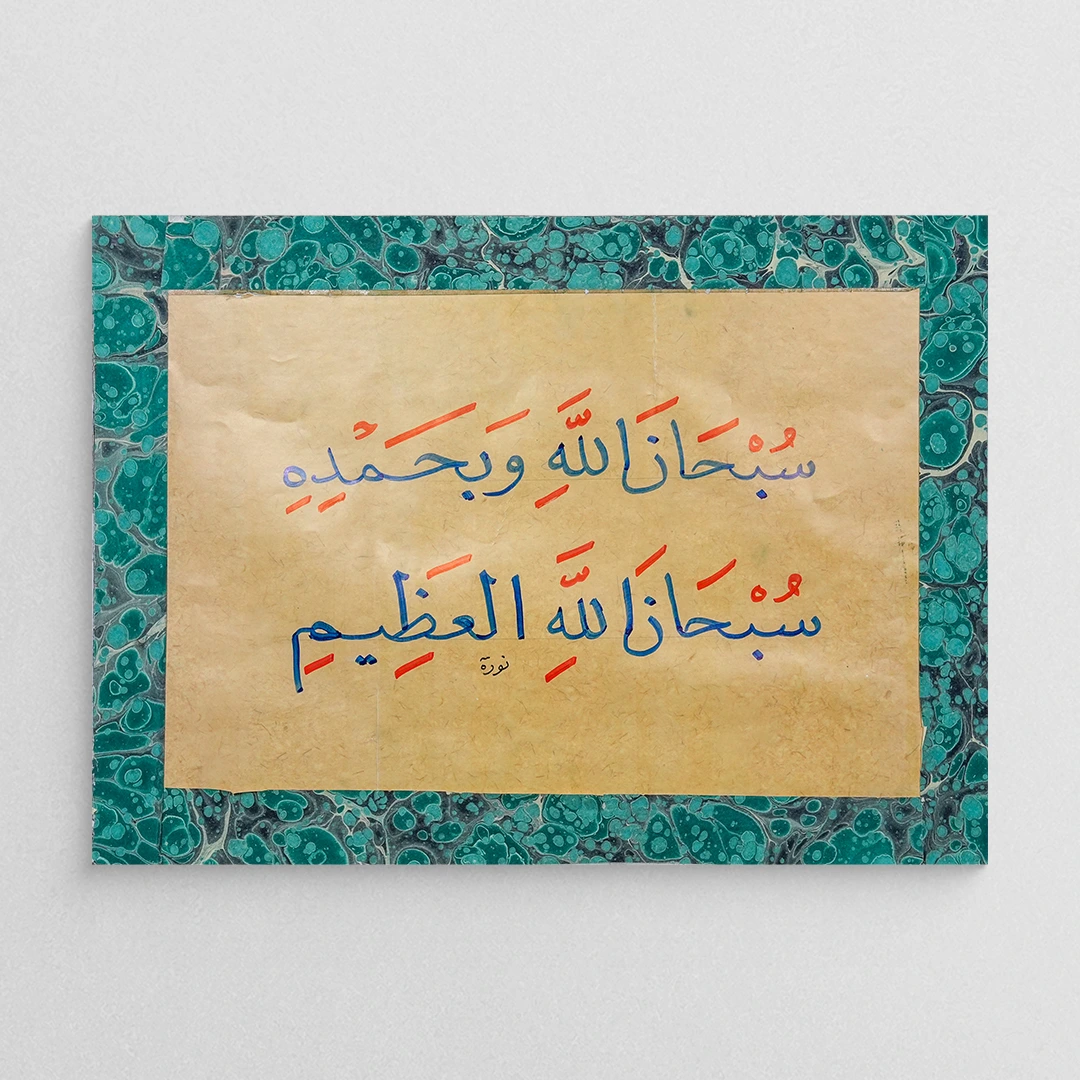 سُبْحَانَ اللَّهِ وَبَحَمْدِهِ
سُبْحَانَ اللَّهِ الْعَظِيمِ
نورة